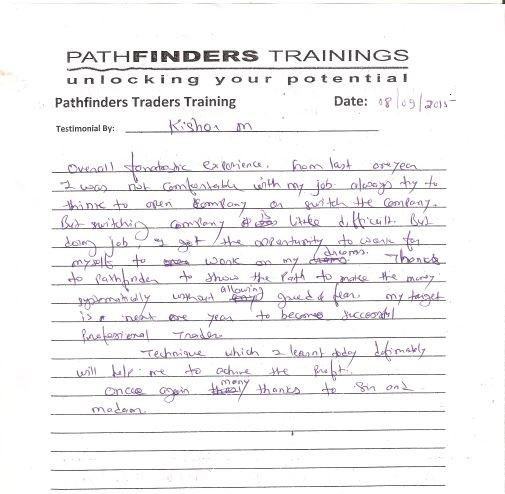 PATHFINDERS TRAININGS
unlocking your potential
Pathfinders Traders Training Date: 08/09/2015
Testimonial By: Kishor m
Overall fantastic experience. from last one year
I was not comfortable with my job always try to
think to open company or switch the company.
But switching company is little difficult. But
doing job I get the opportunity to work for
myself to work on my dreams. Thanks
to Pathfinder to show the path to make the money
systematically without allowing greed & fear. my target
is next one year to become successful
Professional Trader.
Technique which I learnt today definately
will help me to achive the Profit.
Once again many thanks to Sir and
madam.